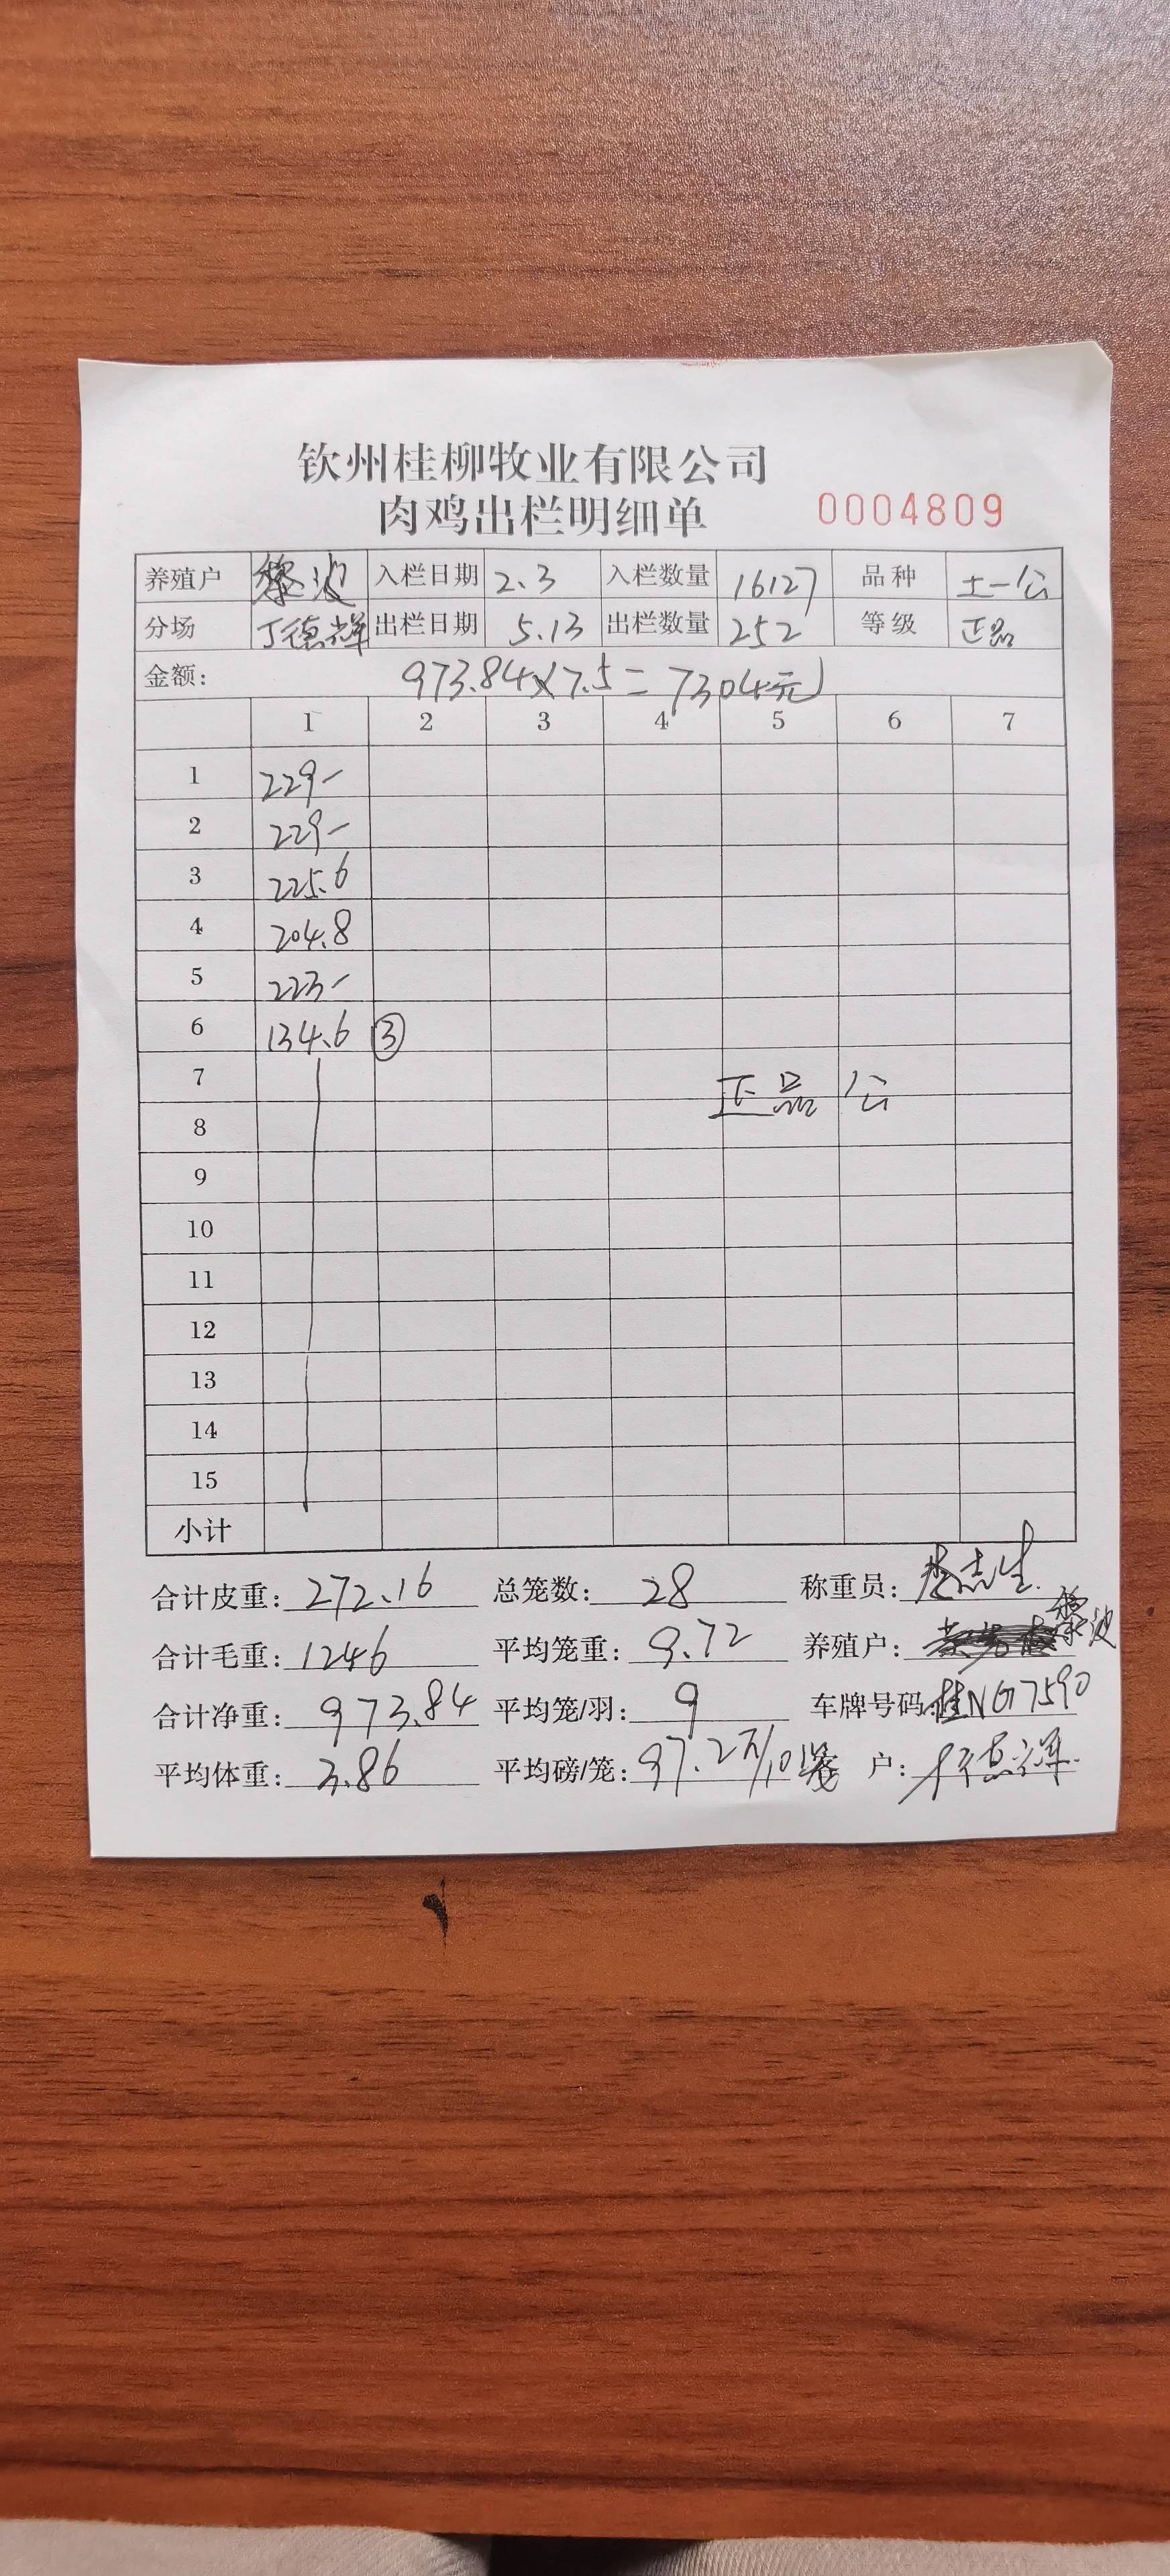 钦州桂柳牧业有限公司
肉鸡出栏明细单 0004809
养殖户 黎波 入栏日期 2.3 入栏数量 16127 品种 土一公
分场 丁德辉 出栏日期 5.13 出栏数量 252 等级 正品
金额: 973.84×7.5=7304元
1 2 3 4 5 6 7
1 229-
2 229-
3 225.6
4 204.8
5 223-
6 134.6 ③
7
正品 公
8
9
10
11
12
13
14
15
小计
合计皮重: 272.16 总笼数: 28 称重员: 志生
合计毛重: 1246 平均笼重: 9.72 养殖户: 黎波
合计净重: 973.84 平均笼/羽: 9 车牌号码: 桂NG7590
平均体重: 3.86 平均磅/笼: 97.2斤/10笼 户: